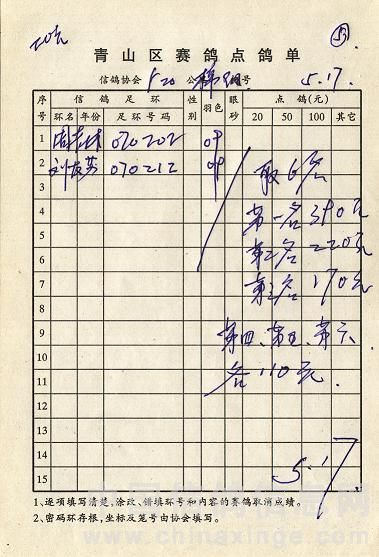 青山区赛鸽点鸽单
信鸽协会 530 公棚 编号 5.17.
序号 信鸽足环 性别 羽色 眼砂 点鸽(元)
环名 年份 足环号码 20 50 100 其它
1 070202
2 刘 070212
3 取6名
4 第一名390元
5 第二名220元
6
7 第三名170元
8
9 第四、第五、第六、
10
11 各110元.
12
13
14
15 5.17
1、逐项填写清楚,涂改、错填环号和内容的赛鸽取消成绩。
2、密码环存根,坐标及笼号由协会填写。
中国信鸽信息网
www.chinaxinge.com